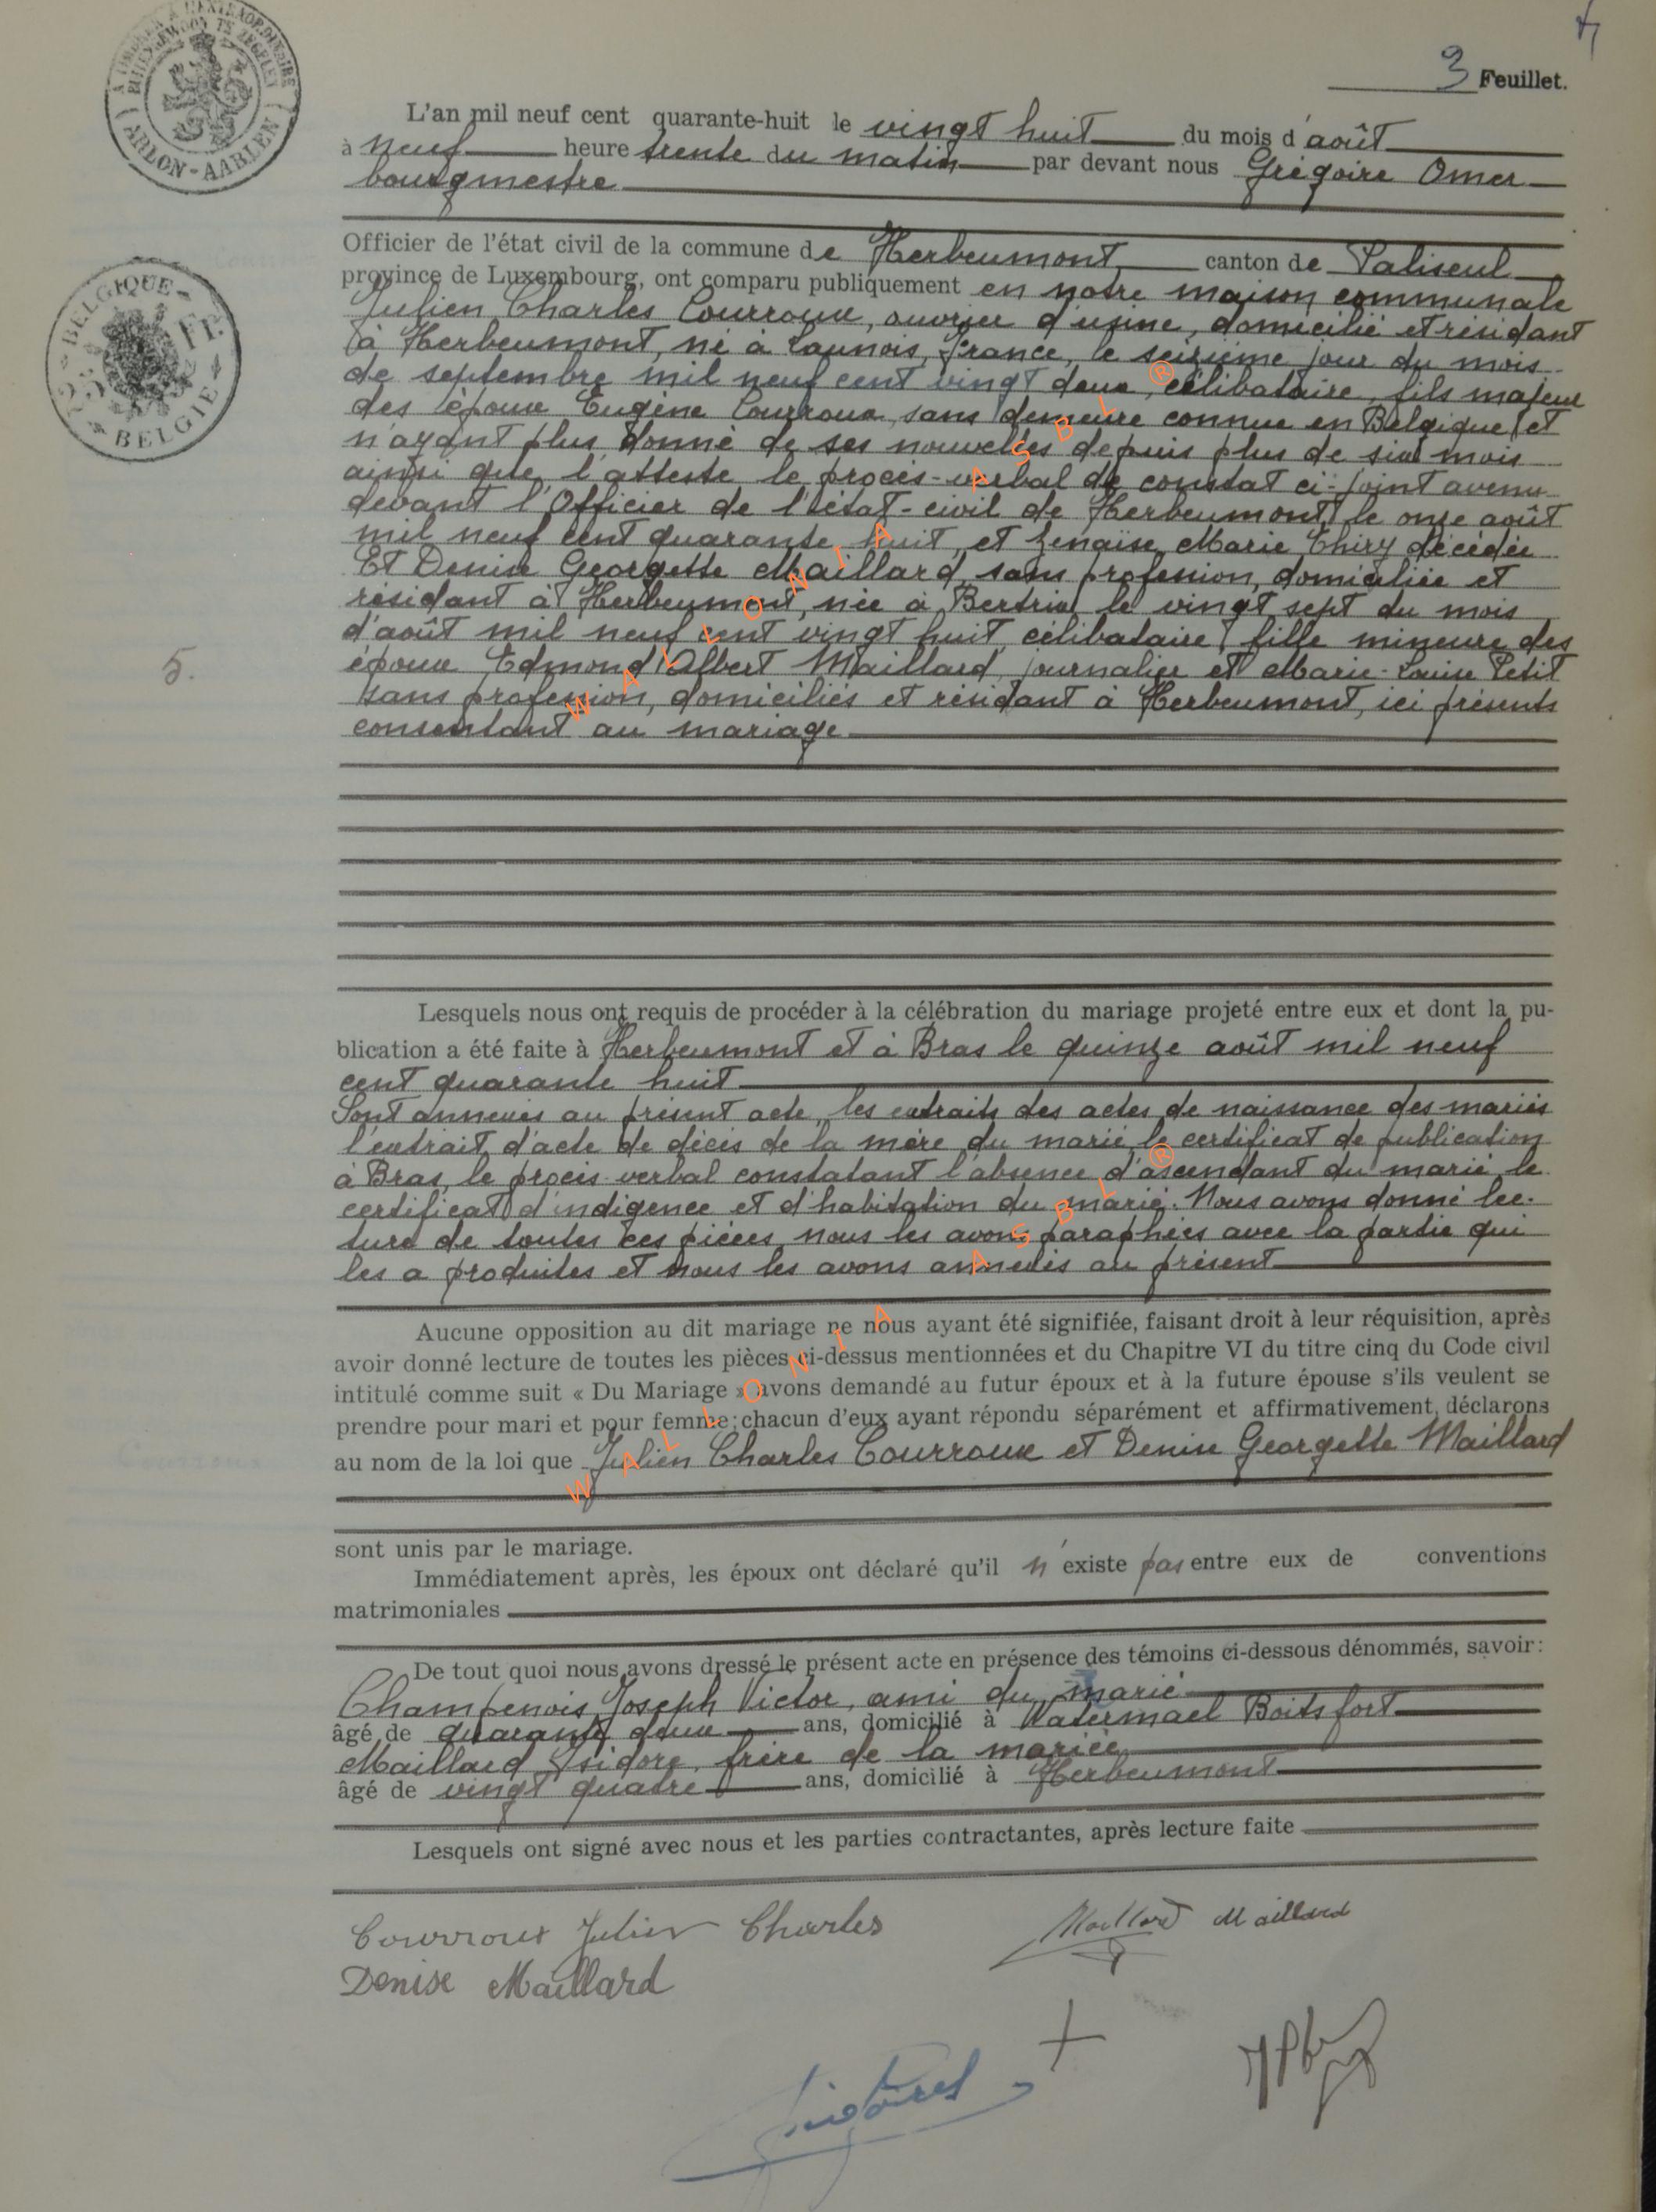 A TIMBRER A L'EXTRAORDINAIRE
BUITENGEWOON TE ZEGELEN
ARLON-AARLEN
3 Feuillet.
L'an mil neuf cent quarante-huit le vingt huit du mois d'août
à neuf heure trente du matin par devant nous Grégoire Omer
bourgmestre
BELGIQUE
FR.
BELGIE
Officier de l'état civil de la commune de Herbeumont, canton de Paliseul
province de Luxembourg, ont comparu publiquement en notre maison communale
Julien Charles Courroux, ouvrier d'usine, domicilié et résidant
à Herbeumont, né à Launois, France, le seizième jour du mois
de septembre mil neuf cent vingt deux, célibataire, fils majeur
des époux Eugène Courroux, sans demeure connue en Belgique et
n'ayant plus donné de ses nouvelles depuis plus de six mois
ainsi que l'atteste le procès-verbal de constat ci-joint avenu
devant l'Officier de l'état-civil de Herbeumont, le onze août
mil neuf cent quarante huit, et Zenaïse Marie Thiry décédée
Et Denise Georgette Maillard, sans profession, domiciliée et
résidant à Herbeumont, née à Bertrix le vingt sept du mois
d'août mil neuf cent vingt huit, célibataire, fille mineure des
5.
époux Edmond Albert Maillard, journalier et Marie-Louise Petit
sans profession, domiciliés et résidant à Herbeumont, ici présents
consentant au mariage
Lesquels nous ont requis de procéder à la célébration du mariage projeté entre eux et dont la pu-
blication a été faite à Herbeumont et à Bras le quinze août mil neuf
cent quarante huit
Sont annexés au présent acte, les extraits des actes de naissance des mariés
l'extrait d'acte de décès de la mère du marié, le certificat de publication
à Bras, le procès-verbal constatant l'absence d'ascendant du marié, le
certificat d'indigence et d'habitation du marié. Nous avons donné lec-
ture de toutes ces pièces, nous les avons paraphées avec la partie qui
les a produites et nous les avons annexés au présent
Aucune opposition au dit mariage ne nous ayant été signifiée, faisant droit à leur réquisition, après
avoir donné lecture de toutes les pièces ci-dessus mentionnées et du Chapitre VI du titre cinq du Code civil
intitulé comme suit « Du Mariage » avons demandé au futur époux et à la future épouse s'ils veulent se
prendre pour mari et pour femme; chacun d'eux ayant répondu séparément et affirmativement, déclarons
au nom de la loi que Julien Charles Courroux et Denise Georgette Maillard
sont unis par le mariage.
Immédiatement après, les époux ont déclaré qu'il n'existe pas entre eux de conventions
matrimoniales
De tout quoi nous avons dressé le présent acte en présence des témoins ci-dessous dénommés, savoir:
Champenois Joseph Victor, ami du marié
âgé de quarante deux ans, domicilié à Watermael Boitsfort
Maillard Isidore, frère de la mariée
âgé de vingt quatre ans, domicilié à Herbeumont
Lesquels ont signé avec nous et les parties contractantes, après lecture faite
Courroux Julien Charles
Maillard Maillard
Denise Maillard
WALLONIA ASBL ®
WALLONIA ASBL ®